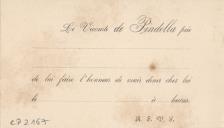 Le Vicomte de Pindella prie
de lui faire l'honneur de venir diner chez lui
le à heures.
R. S. V. P.